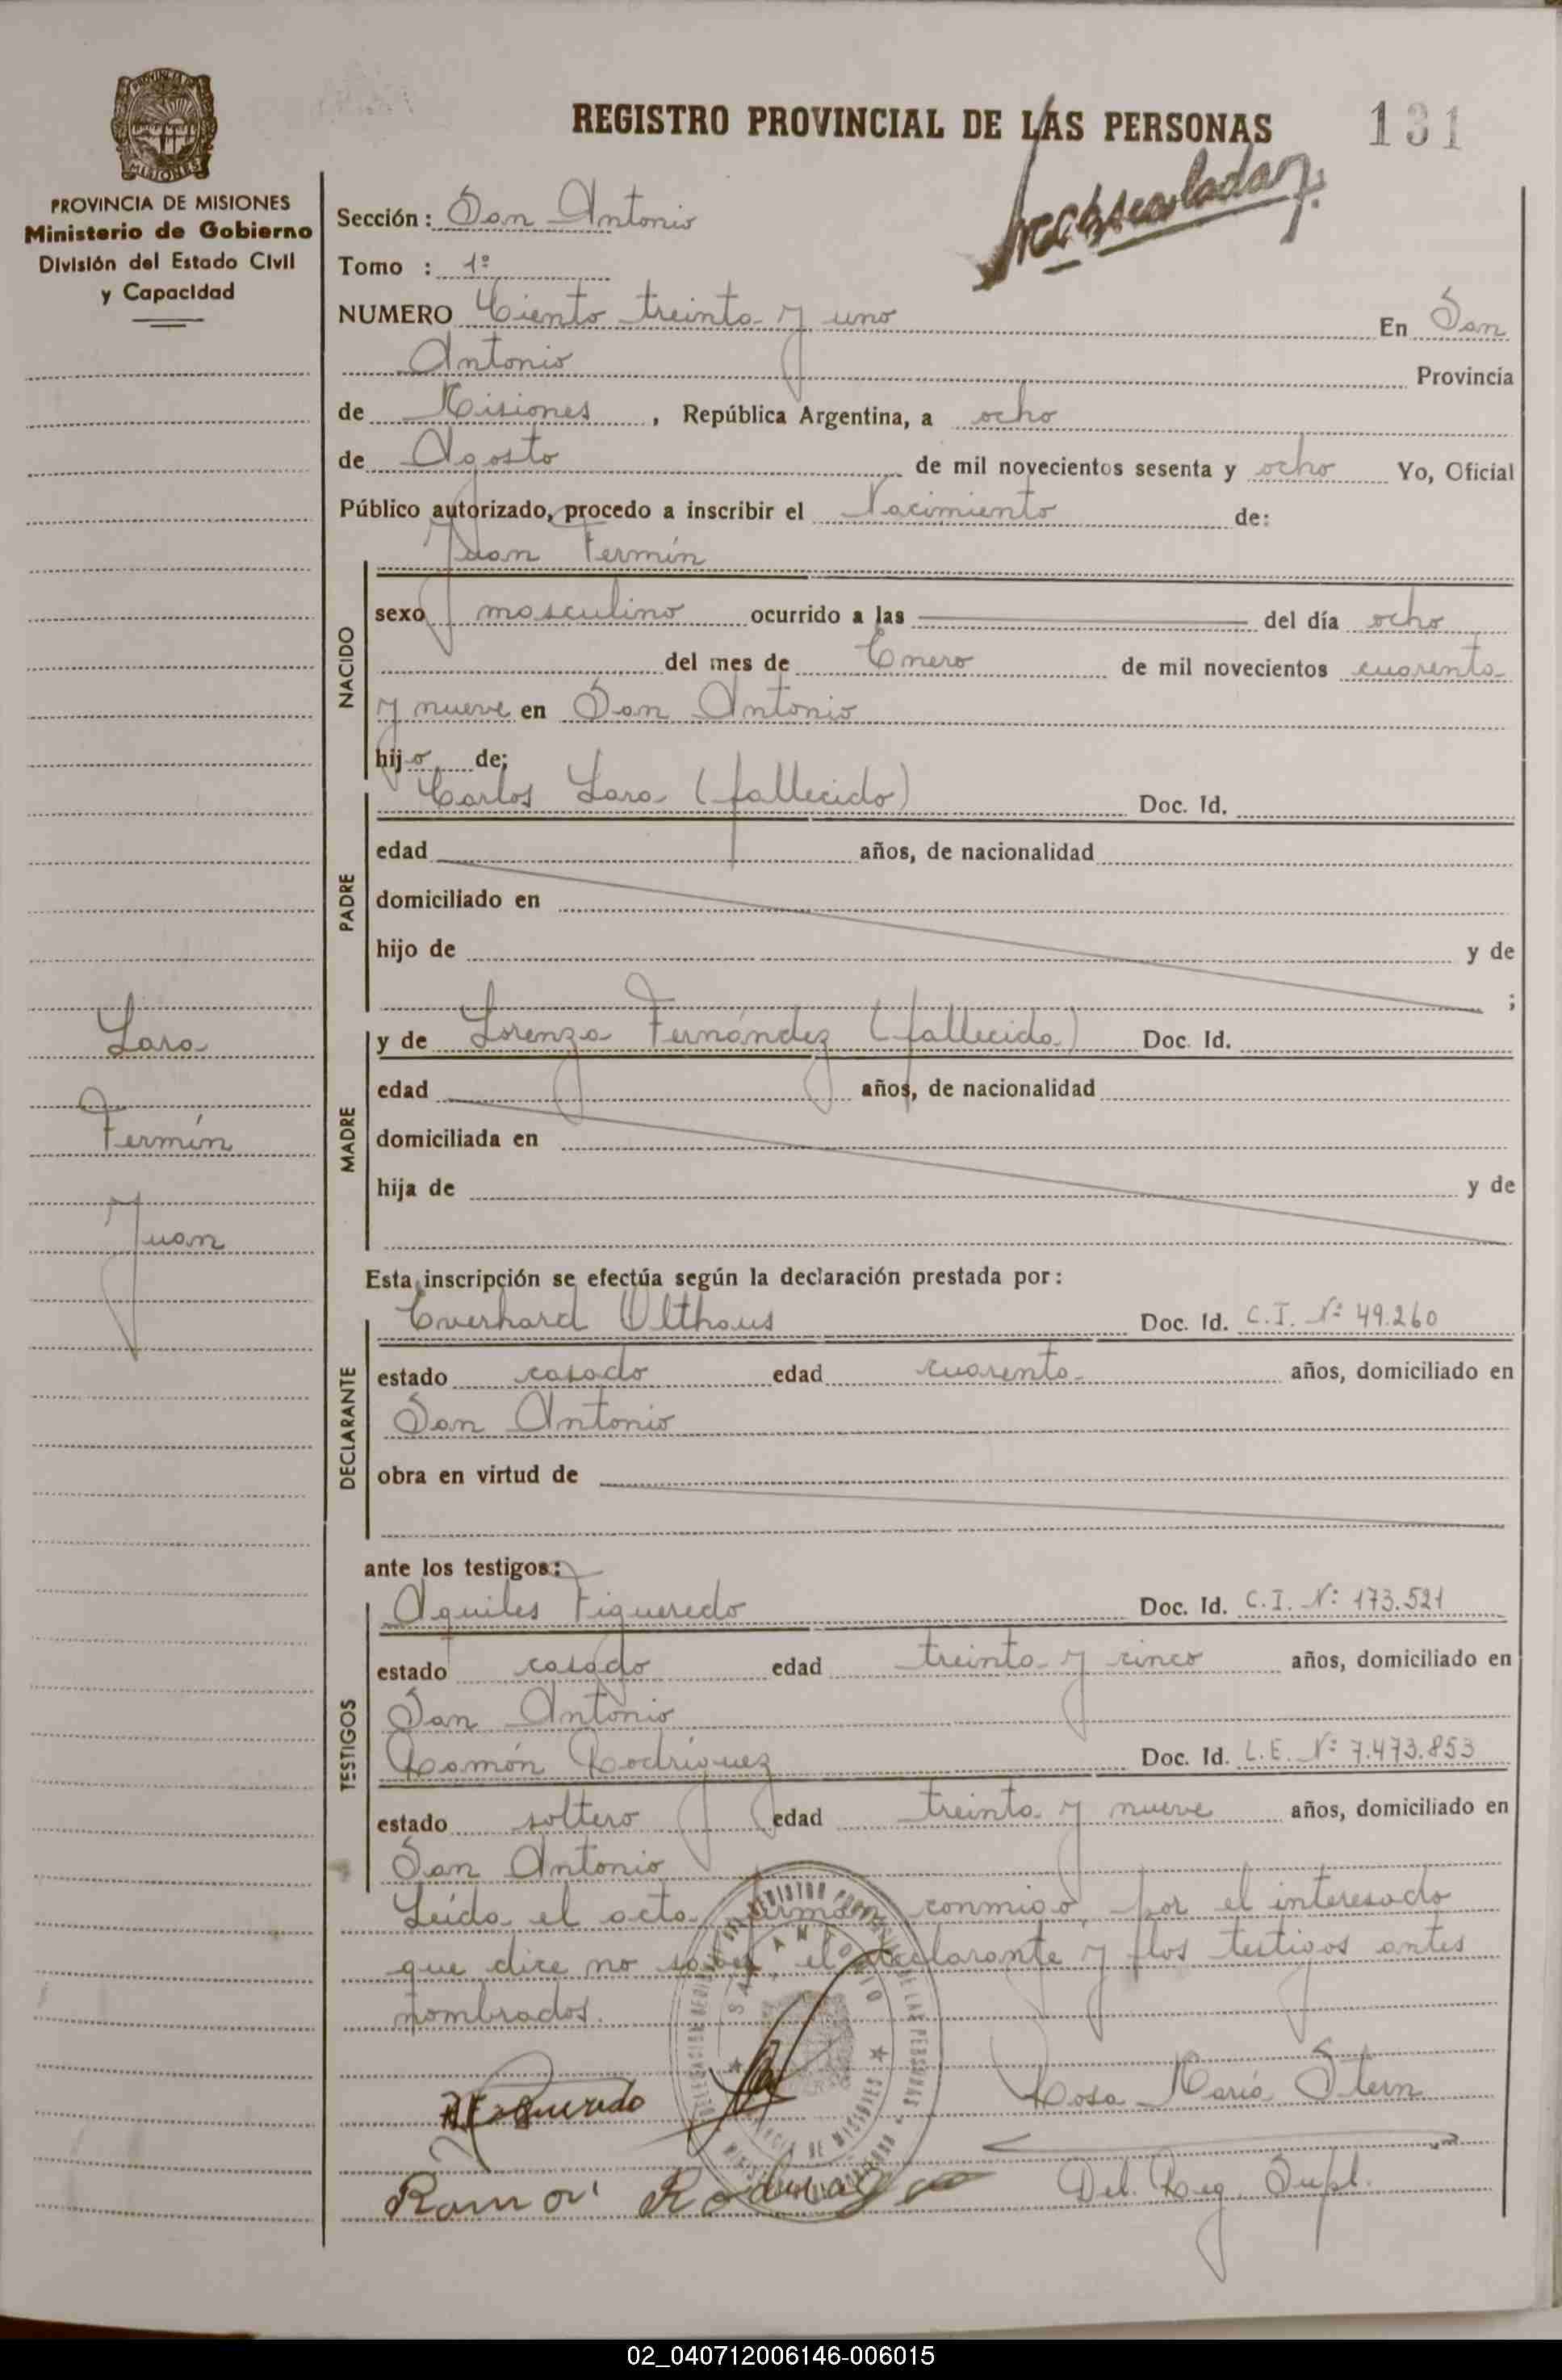 REGISTRO PROVINCIAL DE LAS PERSONAS 131
MISIONES
PROVINCIA DE MISIONES
Ministerio de Gobierno
División del Estado Civil
y Capacidad
Sección: San Antonio
Tomo : 1º
NUMERO Ciento treinta y uno En San
Antonio Provincia
de Misiones, República Argentina, a ocho
de Agosto de mil novecientos sesenta y ocho Yo, Oficial
Público autorizado, procedo a inscribir el Nacimiento de:
Juan Fermín
NACIDO
sexo masculino ocurrido a las del día ocho
del mes de Enero de mil novecientos cuarenta
y nueve en San Antonio
hijo de;
PADRE
Carlos Lara (fallecido) Doc. Id.
edad años, de nacionalidad
domiciliado en
hijo de y de
;
MADRE
y de Lorenza Fernández (fallecida) Doc. Id.
edad años, de nacionalidad
domiciliada en
hija de y de
Lara
Fermín
Juan
Esta inscripción se efectúa según la declaración prestada por:
DECLARANTE
Everhard Olthaus Doc. Id. C.I. Nº 49.260
estado casado edad cuarenta años, domiciliado en
San Antonio
obra en virtud de
ante los testigos:
TESTIGOS
Aquiles Figueredo Doc. Id. C.I. Nº 173.521
estado casado edad treinta y cinco años, domiciliado en
San Antonio
Ramón Rodríguez Doc. Id. L.E. Nº 7.473.853
estado soltero edad treinta y nueve años, domiciliado en
San Antonio
Leída el acta firman conmigo, por el interesado
que dice no saber, el declarante y los testigos antes
nombrados.
A Figueredo
Rosa María Stern
Ramon Rodriguez
Del. Reg. Supl.
02_040712006146-006015